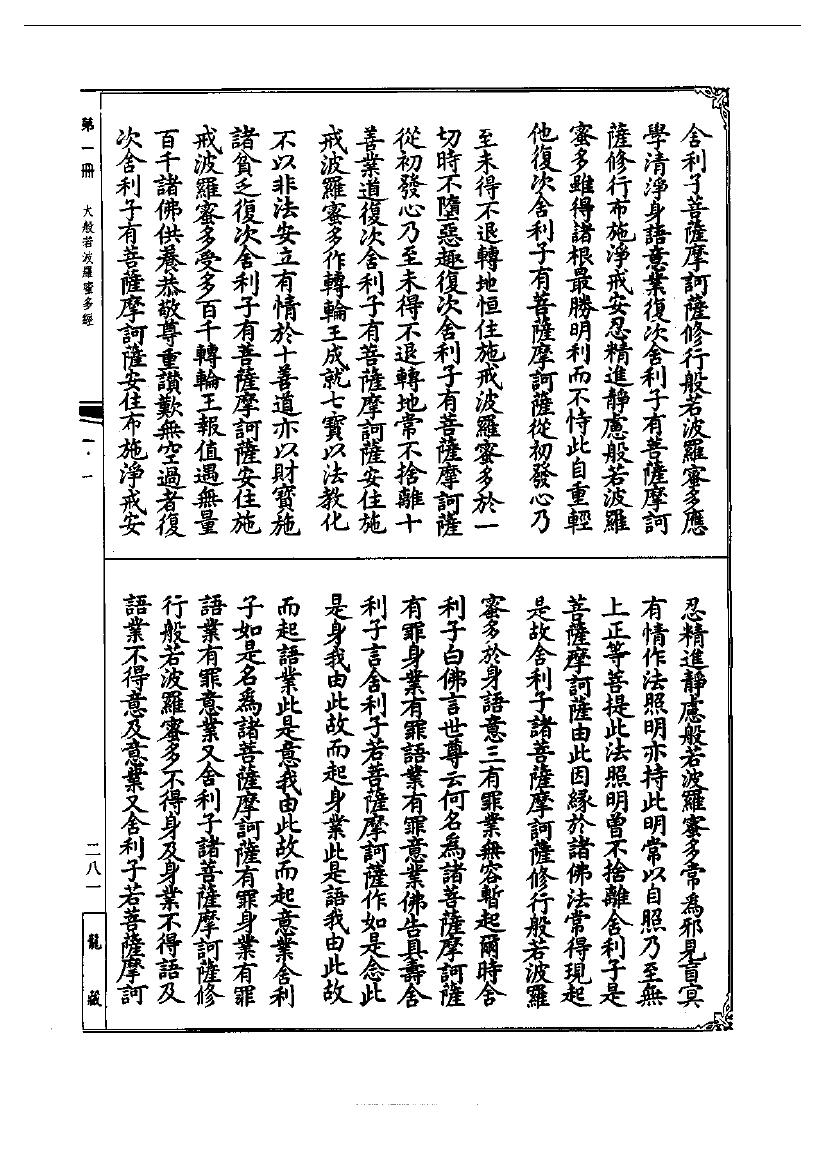 舍利子菩薩摩訶薩修行般若波羅蜜多應
學清淨身語意業復次舍利子有菩薩摩訶
薩修行布施淨戒安忍精進靜慮般若波羅
蜜多雖得諸根最勝明利而不恃此自重輕
他復次舍利子有菩薩摩訶薩從初發心乃
至未得不退轉地恒住施戒波羅蜜多於一
切時不墮惡趣復次舍利子有菩薩摩訶薩
從初發心乃至未得不退轉地常不捨離十
善業道復次舍利子有菩薩摩訶薩安住施
戒波羅蜜多作轉輪王成就七寶以法教化
不以非法安立有情於十善道亦以財寶施
諸貧乏復次舍利子有菩薩摩訶薩安住施
戒波羅蜜多受多百千轉輪王報值遇無量
百千諸佛供養恭敬尊重讚歎無空過者復
次舍利子有菩薩摩訶薩安住布施淨戒安
忍精進靜慮般若波羅蜜多常為邪見盲冥
有情作法照明亦持此明常以自照乃至無
上正等菩提此法照明曾不捨離舍利子是
菩薩摩訶薩由此因緣於諸佛法常得現起
是故舍利子諸菩薩摩訶薩修行般若波羅
蜜多於身語意三有罪業無容暫起爾時舍
利子白佛言世尊云何名為諸菩薩摩訶薩
有罪身業有罪語業有罪意業佛告具壽舍
利子言舍利子若菩薩摩訶薩作如是念此
是身我由此故而起身業此是語我由此故
而起語業此是意我由此故而起意業舍利
子如是名為諸菩薩摩訶薩有罪身業有罪
語業有罪意業又舍利子諸菩薩摩訶薩修
行般若波羅蜜多不得身及身業不得語及
語業不得意及意業又舍利子若菩薩摩訶
第一冊 大般若波羅蜜多經
一·一
二八一
龍藏